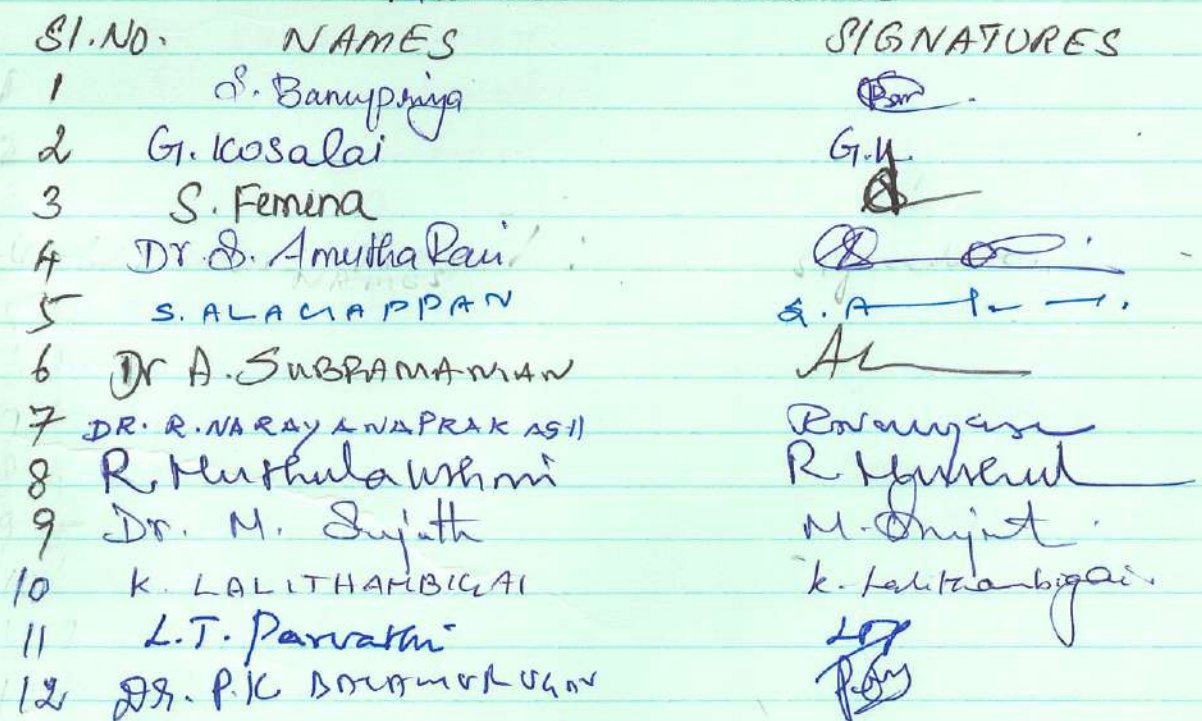 Sl.No. NAMES SIGNATURES
1 S. Banupriya
2 G. Kosalai G.K.
3 S. Femina
4 Dr. S. Amutha Rani
5 S. ALAGAPPAN S. A
6 Dr A. SUBRAMANIAN
7 DR. R. NARAYANAPRAKASH
8 R. Muthulakshmi R Muthul
9 Dr. M. Sujatha M. Sujat
10 K. LALITHAMBIGAI K. Lalithambigai.
11 L.T. Parvathi
12 DR. P.K BALAMURUGAN